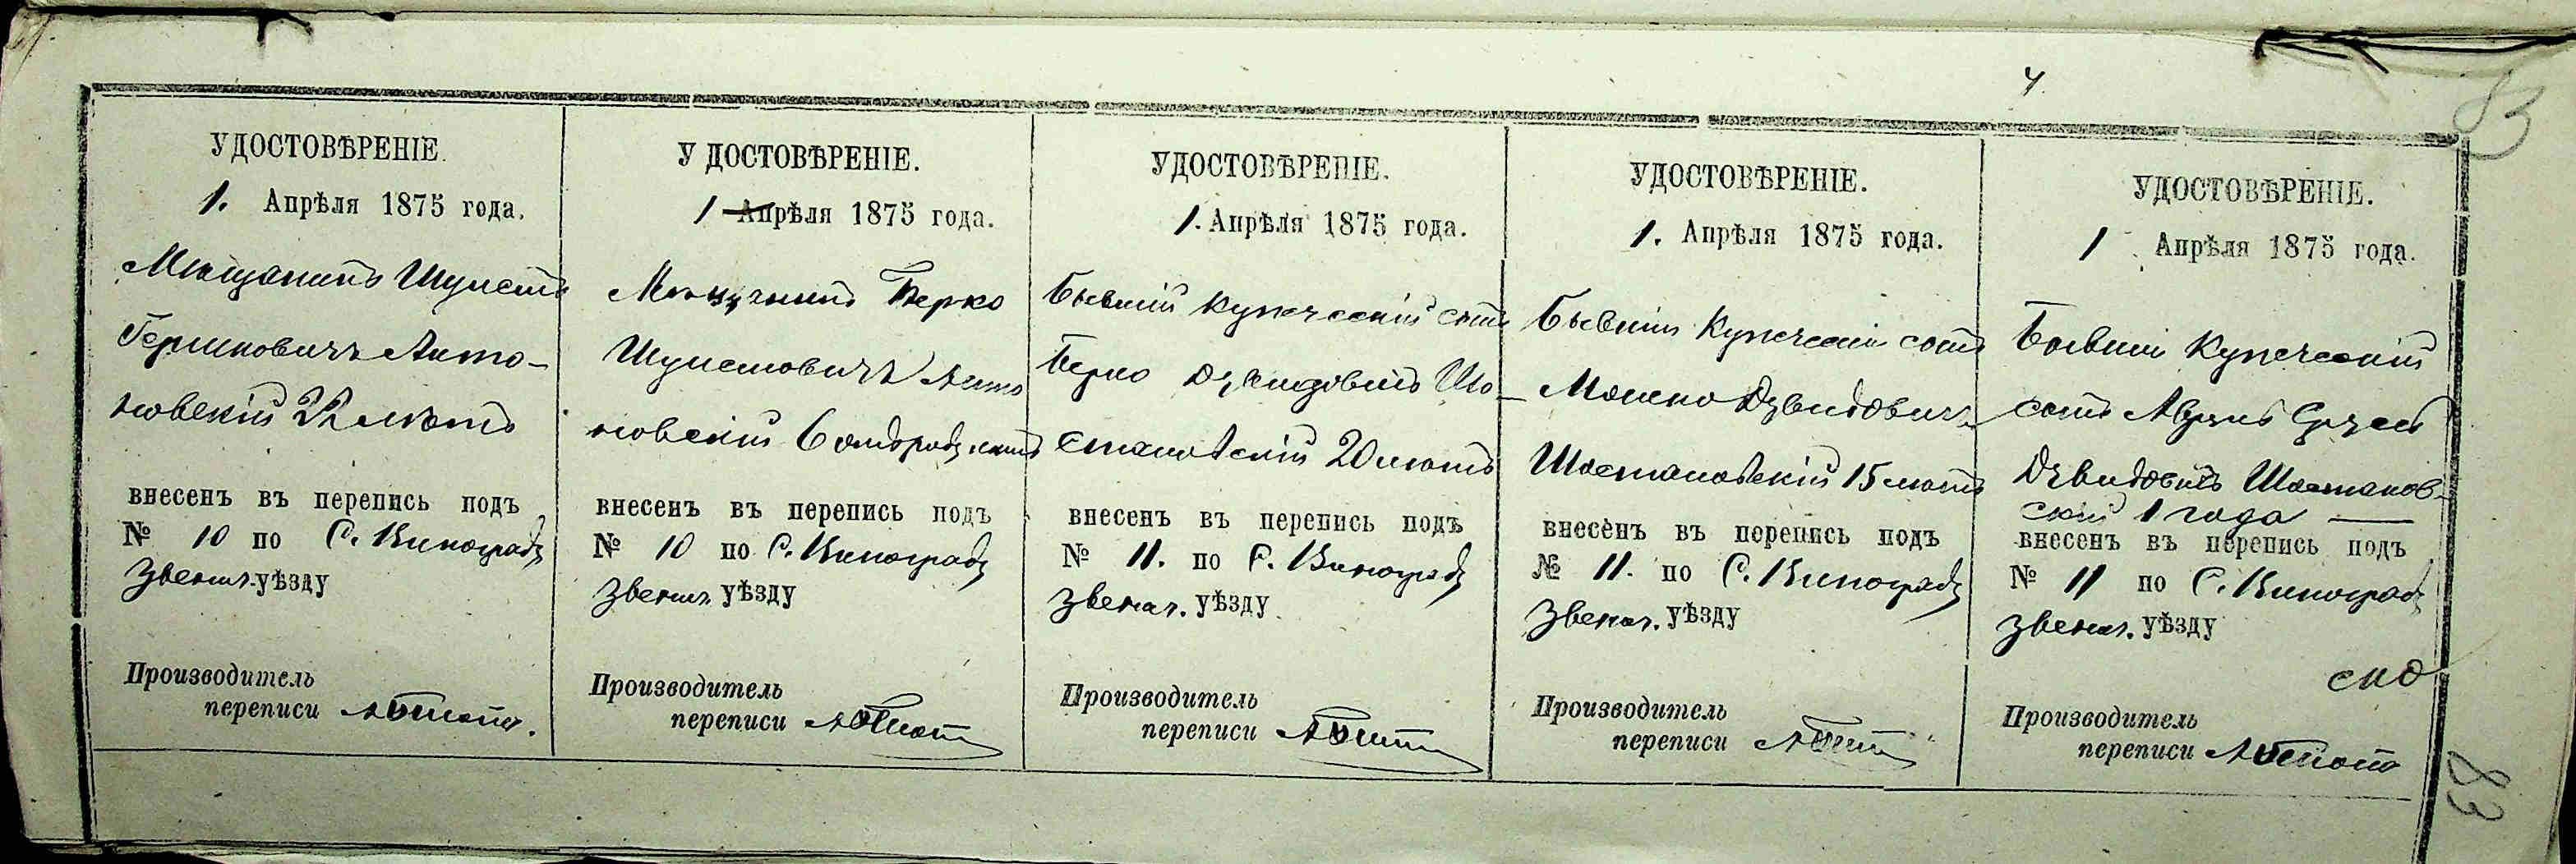 4
83
УДОСТОВѢРЕНІЕ.
1. Апрѣля 1875 года.
Мѣщанинъ
Гершковичъ Анто-
новскій 22 лѣтъ
внесенъ въ перепись подъ
№ 10 по С. Виноградъ
Звениг. уѣзду
Производитель
переписи
УДОСТОВѢРЕНІЕ.
1 Апрѣля 1875 года.
Мѣщанинъ Берко
Анто
новскій
внесенъ въ перепись подъ
№ 10 по С. Виноградъ
Звениг. уѣзду
Производитель
переписи
УДОСТОВѢРЕНІЕ.
1. Апрѣля 1875 года.
Бывшій купеческій сынъ
Берко Давидовичъ Шо-
становскій 20 лѣтъ
внесенъ въ перепись подъ
№ 11. по С. Виноградъ
Звениг. уѣзду
Производитель
переписи
УДОСТОВѢРЕНІЕ.
1. Апрѣля 1875 года.
Бывшій Купеческій сынъ
Мошко Давидовичъ
Шостановскій 15 лѣтъ
внесенъ въ перепись подъ
№ 11. по С. Виноградъ
Звениг. уѣзду
Производитель
переписи
УДОСТОВѢРЕНІЕ.
1 Апрѣля 1875 года.
Бывшій Купеческій
сынъ
Давидовичъ Шостанов-
скій 1 года
внесенъ въ перепись подъ
№ 11 по С. Виноградъ
Звениг. уѣзду
Производитель
переписи
83